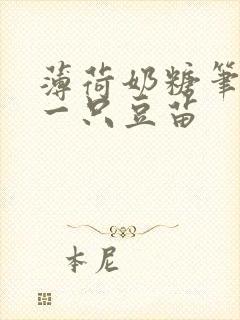 薄荷奶糖笔
一只豆苗
本尼